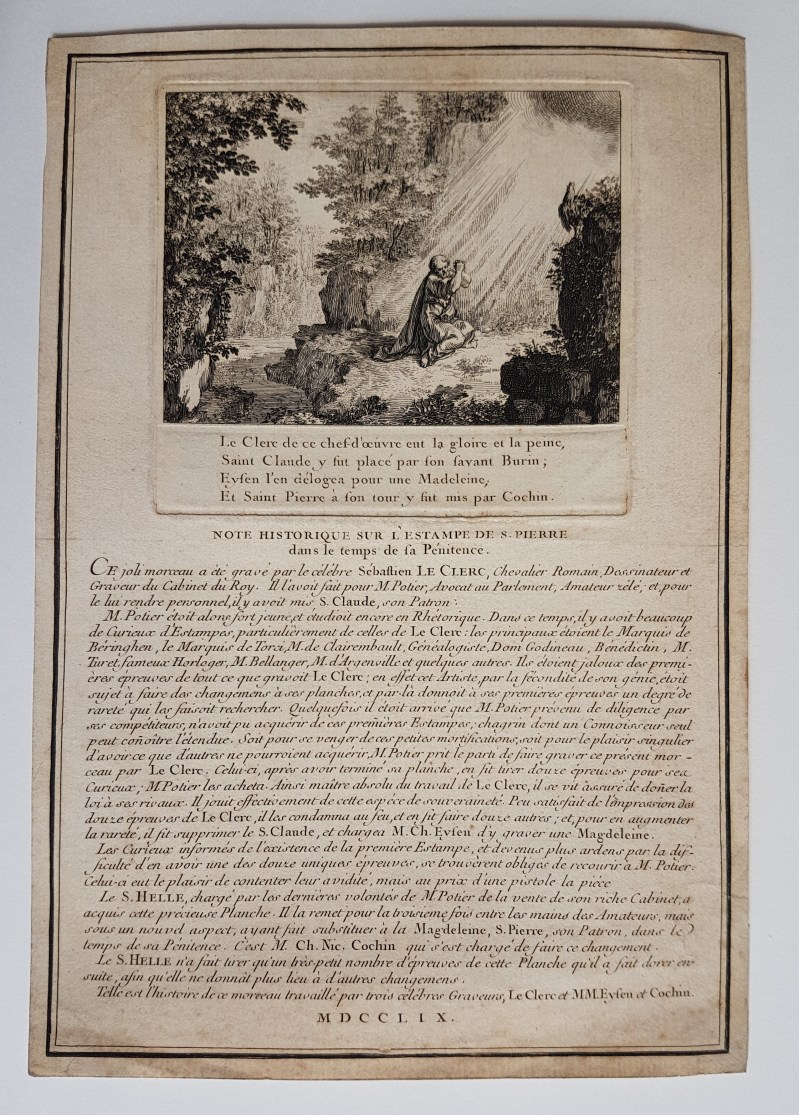 Le Clerc de ce chef-d'œuvre eut la gloire et la peine,
Saint Claude y fut placé par son savant Burin ;
Eysen l'en délogea pour une Madeleine,
Et Saint Pierre à son tour y fut mis par Cochin.
NOTE HISTORIQUE SUR L'ESTAMPE DE S. PIERRE
dans le temps de sa Pénitence.
CE joli morceau a été gravé par le célébre Sébastien LE CLERC, Chevalier Romain, Dessinateur et
Graveur du Cabinet du Roy. Il l'avoit fait pour M. Potier, Avocat au Parlement, Amateur zélé; et, pour
le lui rendre personnel, il y avoit mis S. Claude, son Patron.
M. Potier étoit alors fort jeune, et étudioit encore en Rhétorique. Dans ce temps, il y avoit beaucoup
de Curieux d'Estampes, particulièrement de celles de Le Clerc: les principaux étoient le Marquis de
Béringhen, le Marquis de Torci, M. de Clairembault, Généalogiste, Dom Godineau, Bénédictin, M.
Turet, fameux Horloger, M. Bellanger, M. d'Argenville et quelques autres. Ils étoient jaloux des premi-
ères épreuves de tout ce que gravoit Le Clerc; en effet cet Artiste, par la fécondité de son génie, étoit
sujet à faire des changemens à ses planches, et par-là donnoit à ses premières épreuves un degré de
rareté qui les faisoit rechercher. Quelquefois il étoit arrivé que M. Potier prévenu de diligence par
ses compétiteurs, n'avoit pu acquérir de ces premières Estampes; chagrin dont un Connoisseur seul
peut coñoître l'étendue. Soit pour se venger de ces petites mortifications, soit pour le plaisir singulier
d'avoir ce que d'autres ne pourroient acquérir, M. Potier prit le parti de faire graver ce présent mor-
ceau par Le Clerc. Celui-ci, après avoir terminé sa planche, en fit tirer douze épreuves pour ses
Curieux; M. Potier les acheta. Ainsi maître absolu du travail de Le Clerc, il se vit assuré de doñer la
loi à ses rivaux. Il jouit effectivement de cette espece de souveraineté. Peu satisfait de l'impression des
douze épreuves de Le Clerc, il les condamna au feu, et en fit faire douze autres; et, pour en augmenter
la rareté, il fit supprimer le S. Claude, et chargea M. Ch. Eysen d'y graver une Magdeleine.
Les Curieux informés de l'existence de la première Estampe, et devenus plus ardens par la dif-
ficulté d'en avoir une des douze uniques épreuves, se trouvèrent obligés de recourir à M. Potier.
Celui-ci eut le plaisir de contenter leur avidité, mais au prix d'une pistole la piéce
Le S. HELLE, chargé par les dernières volontés de M. Potier de la vente de son riche Cabinet, a
acquis cette précieuse Planche. Il la remet pour la troisieme fois entre les mains des Amateurs, mais
sous un nouvel aspect, ayant fait substituer à la Magdeleine, S. Pierre, son Patron, dans le
temps de sa Pénitence. C'est M. Ch. Nic. Cochin qui s'est chargé de faire ce changement.
Le S. HELLE n'a fait tirer qu'un très-petit nombre d'épreuves de cette Planche qu'il a fait dorer en-
suite, afin qu'elle ne donnât plus lieu à d'autres changemens.
Telle est l'histoire de ce morceau travaillé par trois célébres Graveurs, Le Clerc et MM. Eysen et Cochin.
MDCCLIX.